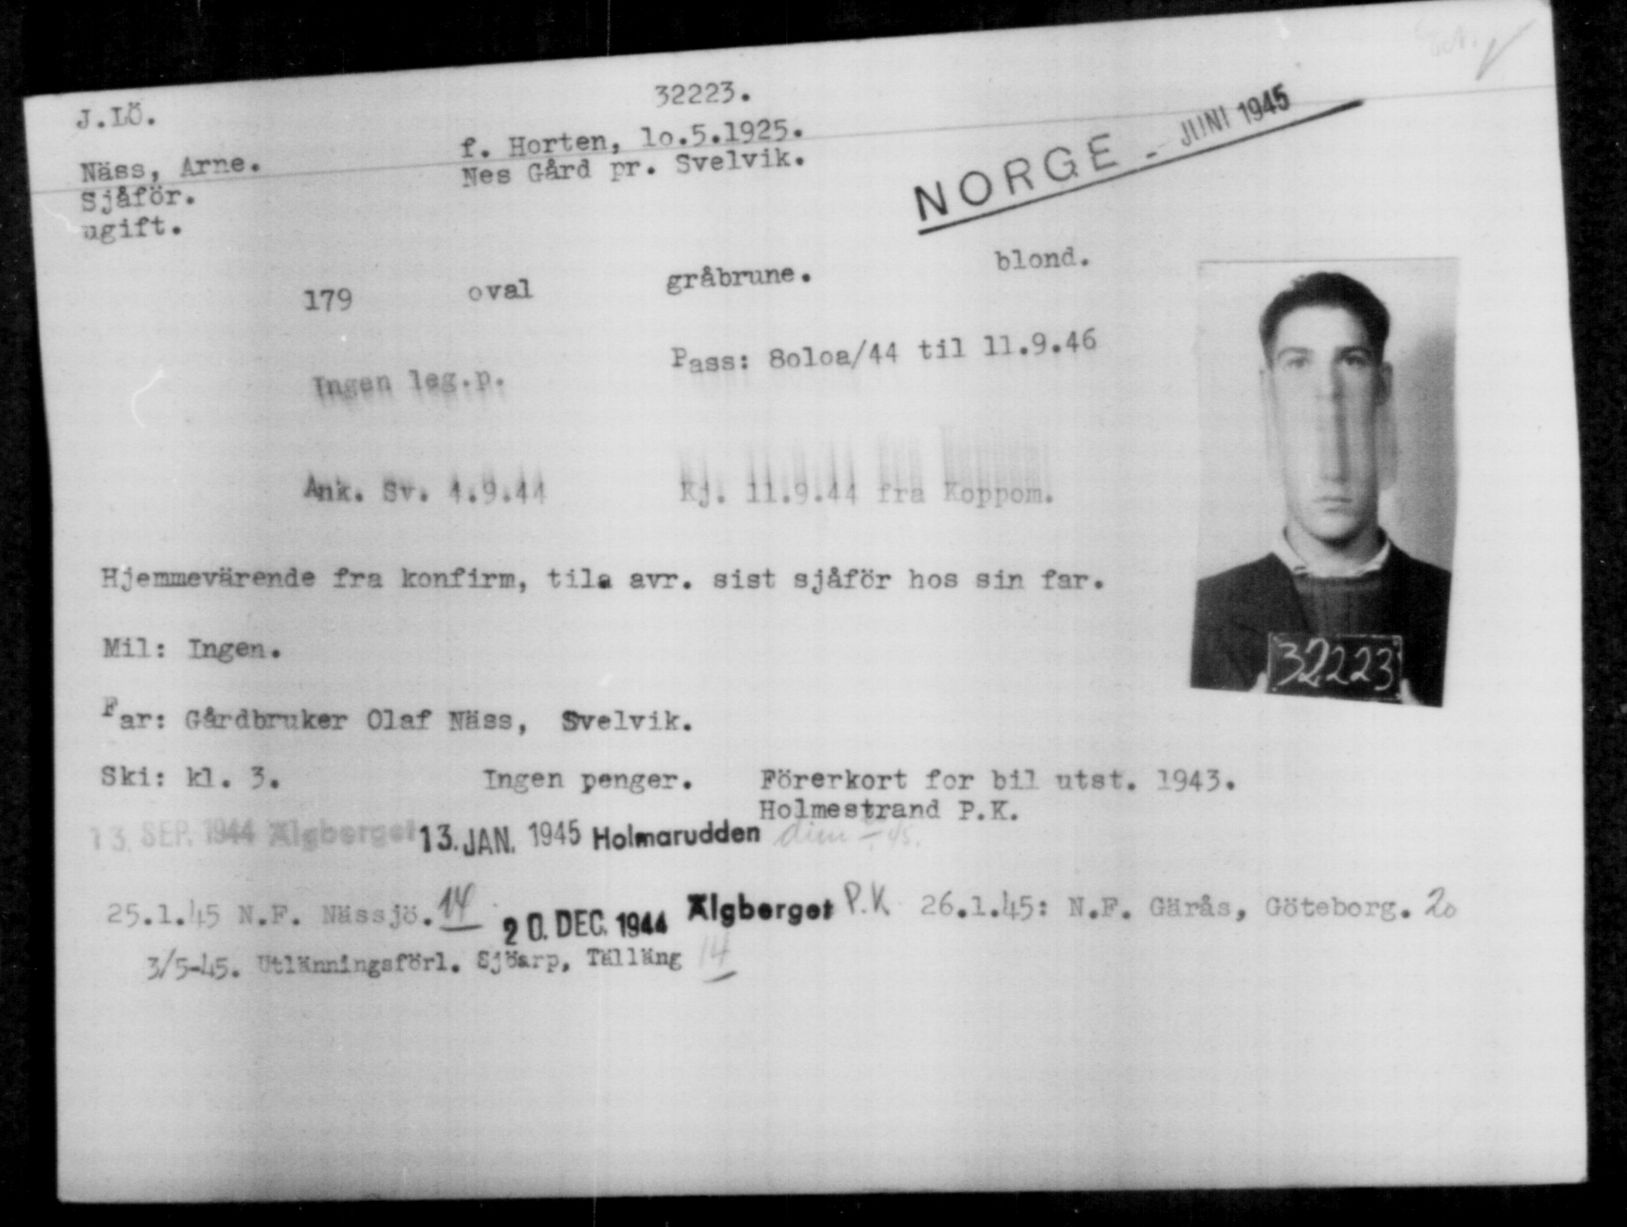 J.LÖ.
32223.
NORGE - JUNI 1945
Näss, Arne.
f. Horten, lo.5.1925.
Sjåför.
Nes Gård pr. Svelvik.
ugift.
179 oval gråbrune. blond.
Ingen leg.p.
Pass: 8oloa/44 til 11.9.46
Ank. Sv. 4.9.44
Kj. 11.9.44 fra Koppom.
Hjemmevärende fra konfirm, tila avr. sist sjåför hos sin far.
Mil: Ingen.
Far: Gårdbruker Olaf Näss, Svelvik.
Ski: kl. 3. Ingen penger. Förerkort for bil utst. 1943.
Holmestrand P.K.
13. SEP. 1944 Älgberget 13. JAN. 1945 Holmarudden
25.1.45 N.F. Nässjö. 14 20. DEC. 1944 Älgberget P.K 26.1.45: N.F. Gärås, Göteborg. 20
3/5-45. Utlänningsförl. Sjöarp, Tälläng 14
32223